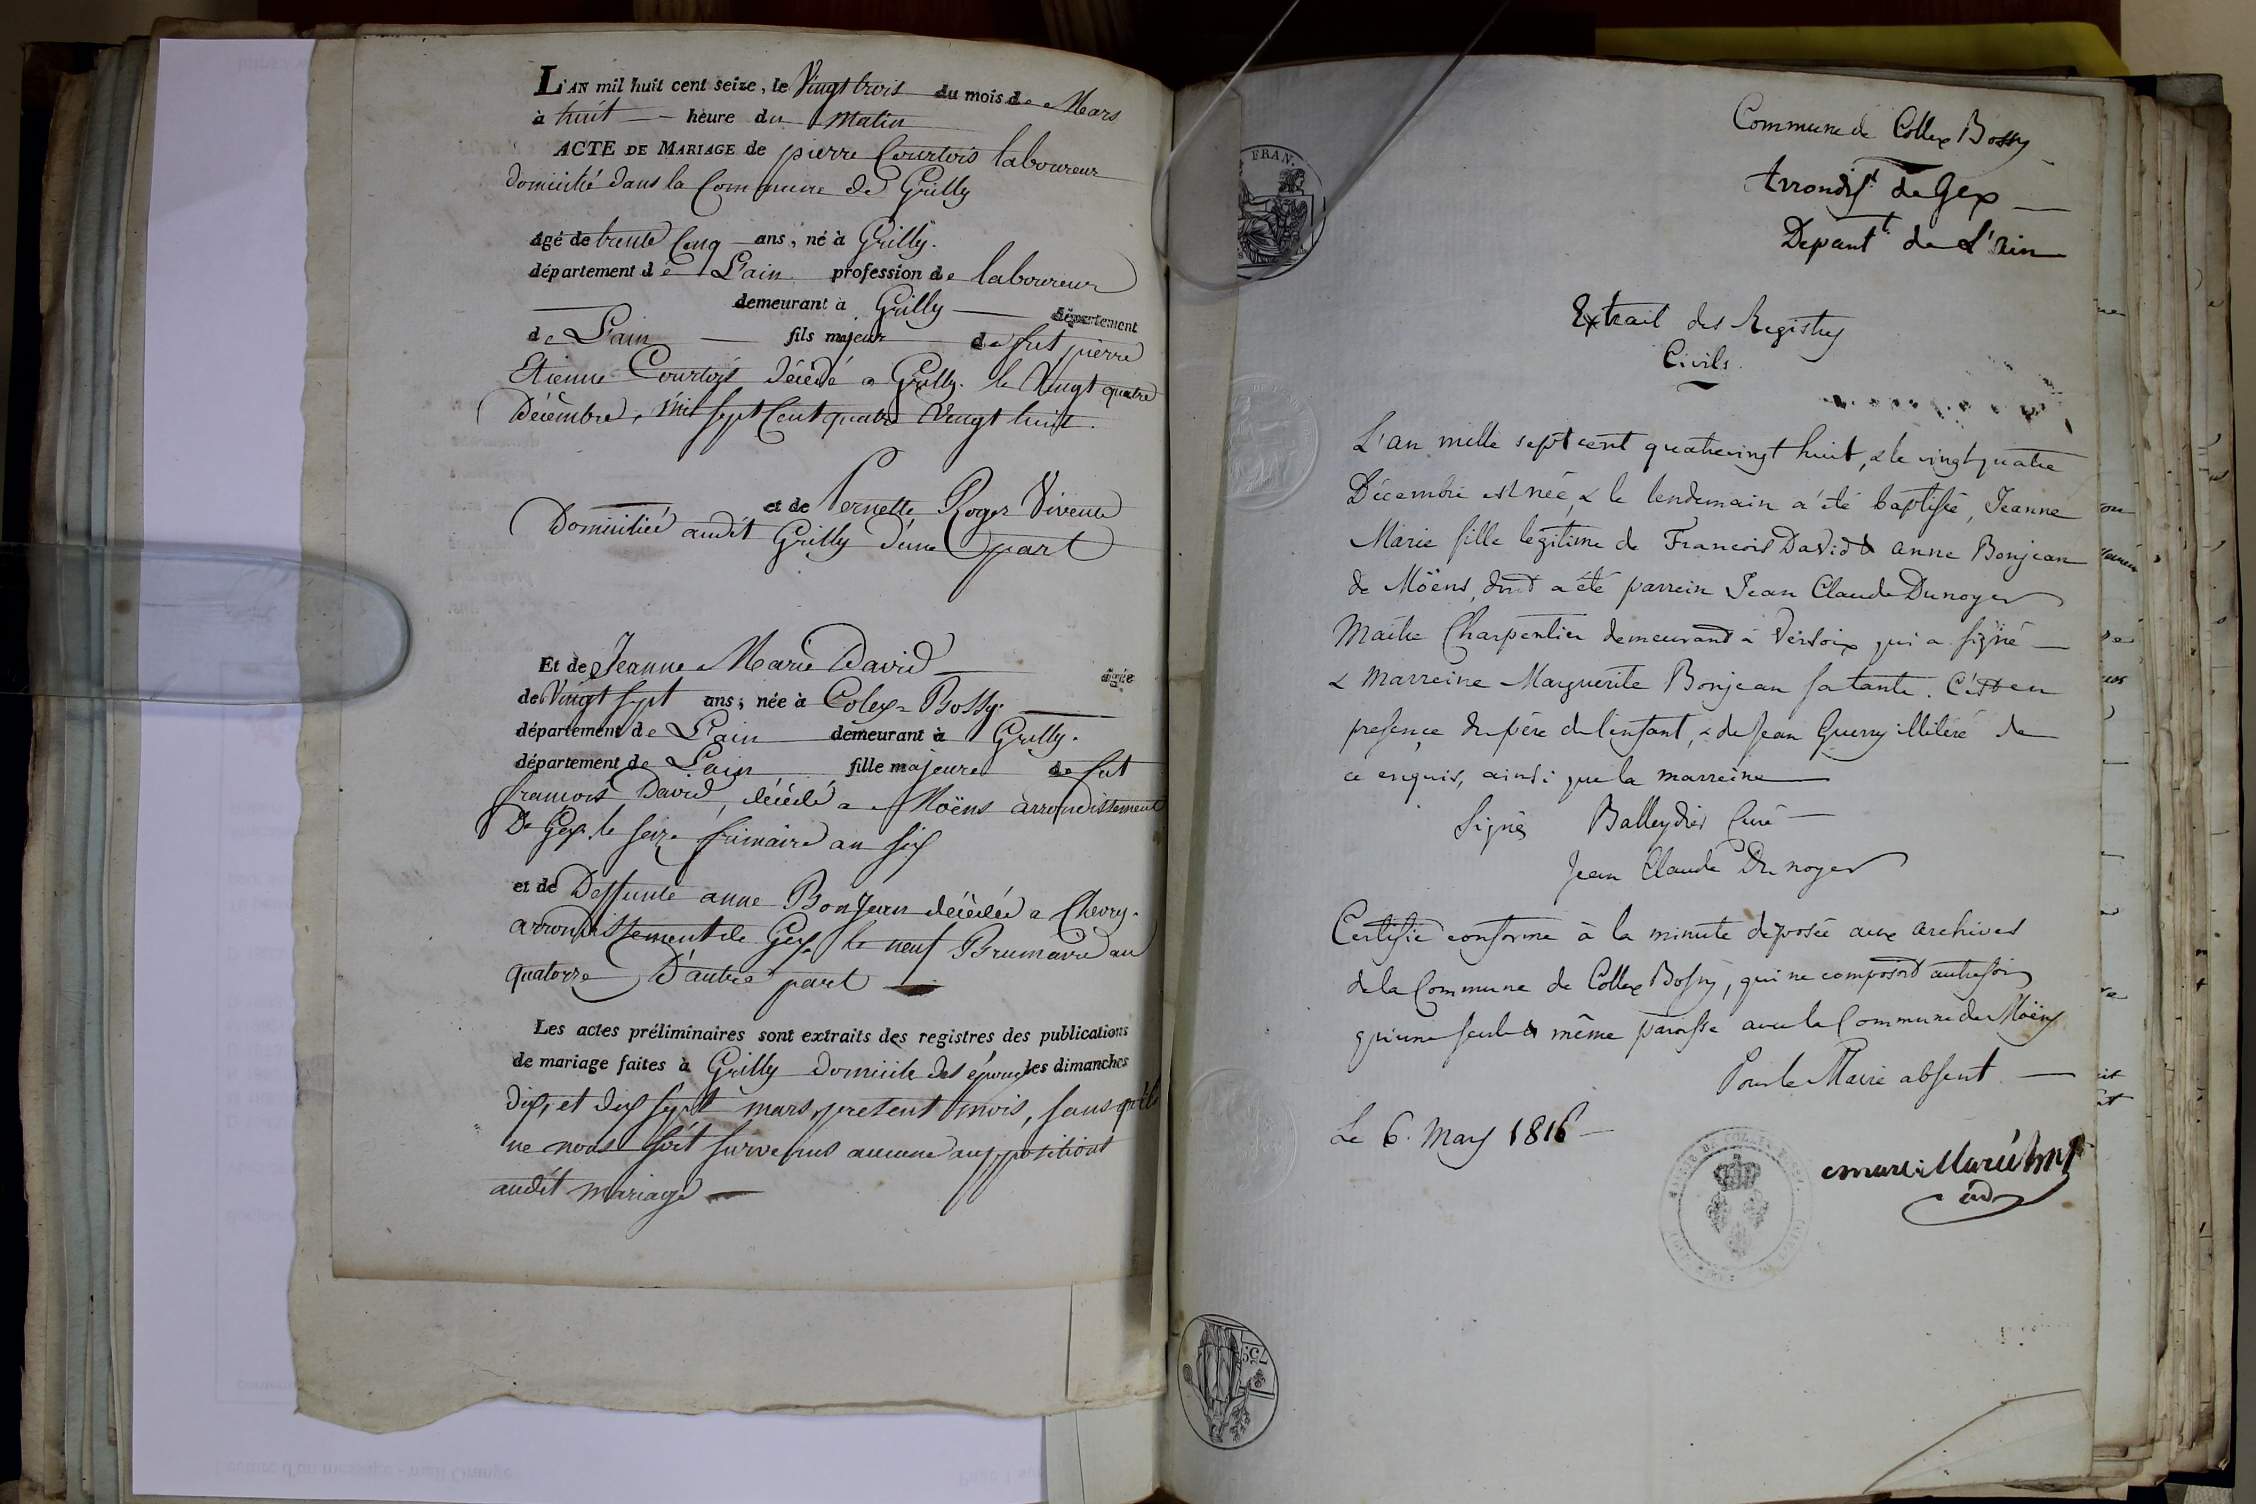 L'AN mil huit cent seize, le Vingt trois du mois de Mars
à huit heure du Matin
ACTE DE MARIAGE de pierre Courtois laboureur
domicilié dans la Commune de Grilly
âgé de trente Cinq ans, né à Grilly.
département de L'ain profession de laboureur
demeurant à Grilly département
de L'ain fils majeur de fut pierre
Etienne Courtois décédé a Grilly. le Vingt quatre
Décembre, mil Sept Cent quatre Vingt huit.
et de Pernette Roger Vivente
Domiciliée audit Grilly d'une part
Et de Jeanne Marie David âgée
de Vingt Sept ans; née à Colex-Bossy.
département de L'ain demeurant à Grilly.
département de L'ain fille majeure de fut
francois David, décédé a Moëns arrondissement
De Gex. le seize frimaire an six
et de Deffunte anne Bonjean décédée a Chevry.
arrondissement de Gex le neuf Brumaire an
quatorze D'autre part
Les actes préliminaires sont extraits des registres des publications
de mariage faites à Grilly Domicile des époux les dimanches
dix, et dix sept mars present mois, sans qu'il
ne nous soit survenus aucune auppositions
audit mariage
FRAN.
Commune de Collex Bossy
Arrondist. de Gex
Depart.t de L'Ain
Extrait des Registres
Civils.
L'an mille sept cent quatrevingt huit, & le vingt quatre
Décembre est née, & le lendemain a été baptisée, Jeanne
Marie fille legitime de Francois David & anne Bonjean
de Möens, dont a été parrein Jean Claude Dunoyer
Maitre Charpentier demeurant à Versoix qui a signé
& Marreine Marguerite Bonjean sa tante. C'est en
presence du père de l'enfant, & de Jean Guerry illiteré de
ce enquis, ainsi que la marreine
Signés Balleydier Curé
Jean Claude Du noyer
Certifié conforme à la minute déposée aux archives
de la Commune de Collex Bossy, qui ne composoit autrefois
qu'une seule & même paroisse avec la Commune de Moëns
Pour le Maire absent
Le 6. Mars 1816
adj
759